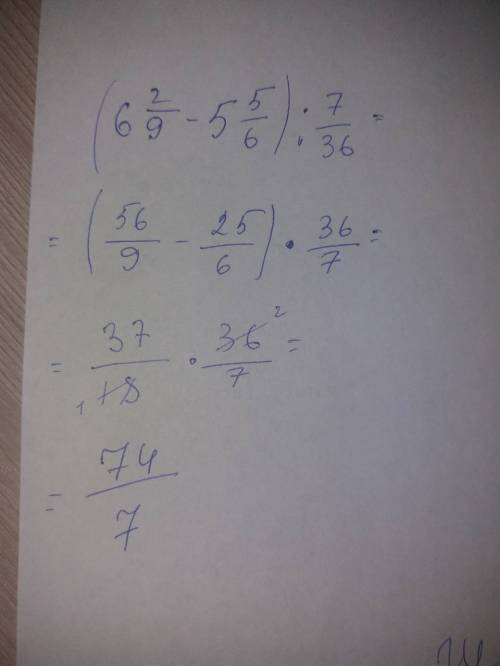 (6 2/9 - 5 5/6) : 7/36 =
= (56/9 - 25/6) · 36/7 =
= 37/18 1 · 36/7 2 =
= 74/7